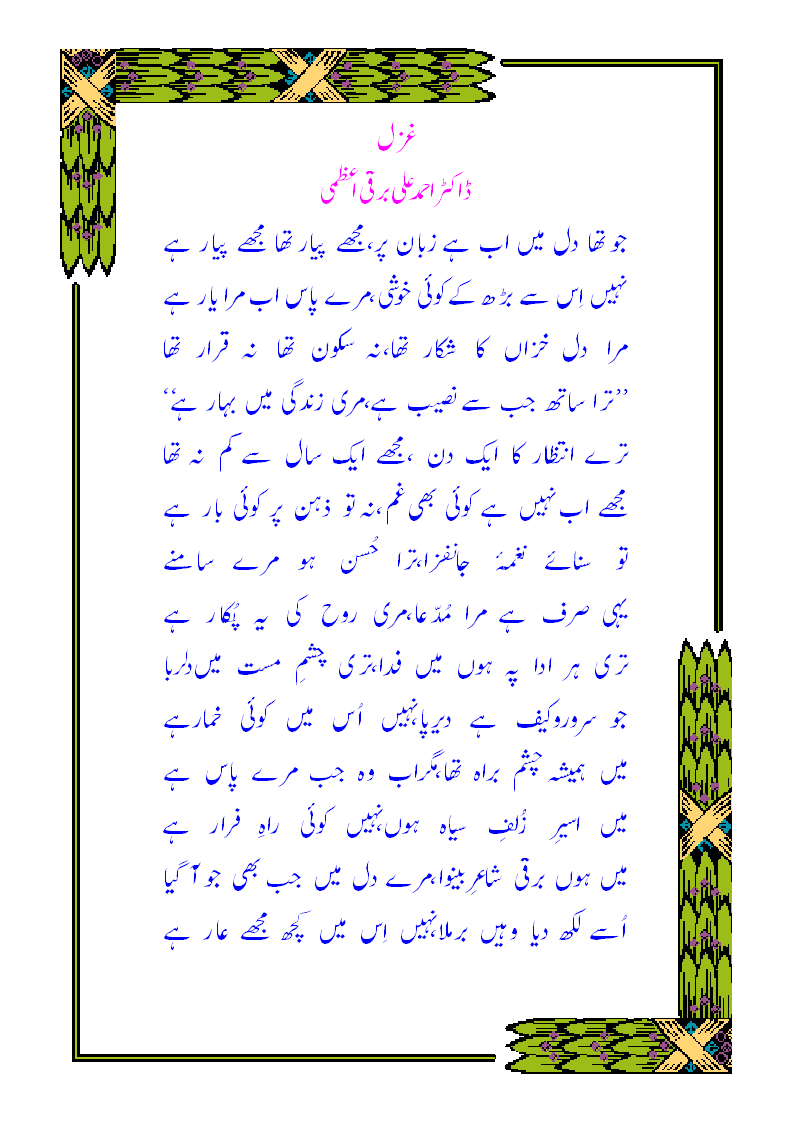 غزل
ڈاکٹر احمد علی برقی اعظمی
جو تھا دل میں اب ہے زبان پر، مجھے پیار تھا مجھے پیار ہے
نہیں اِس سے بڑھ کے کوئی خوشی، مرے پاس اب مرا یار ہے
مرا دل خزاں کا شکار تھا، نہ سکون تھا نہ قرار تھا
’’ترا ساتھ جب سے نصیب ہے، مری زندگی میں بہار ہے‘‘
ترے انتظار کا ایک دن ، مجھے ایک سال سے کم نہ تھا
مجھے اب نہیں ہے کوئی بھی غم، نہ تو ذہن پر کوئی بار ہے
تو سنائے نغمۂ جانفزا، ترا حُسن ہو مرے سامنے
یہی صرف ہے مرا مُدّعا، مری روح کی یہ پُکار ہے
تری ہر ادا پہ ہوں میں فدا، تری چشمِ مست میں دلربا
جو سرور و کیف ہے دیرپا، نہیں اُس میں کوئی خمار ہے
میں ہمیشہ چشم براہ تھا، مگر اب وہ جب مرے پاس ہے
میں اسیرِ زُلفِ سیاہ ہوں، نہیں کوئی راہِ فرار ہے
میں ہوں برقی شاعرِ بینوا، مرے دل میں جب بھی جو آ گیا
اُسے لکھ دیا وہیں برملا، نہیں اِس میں کچھ مجھے عار ہے